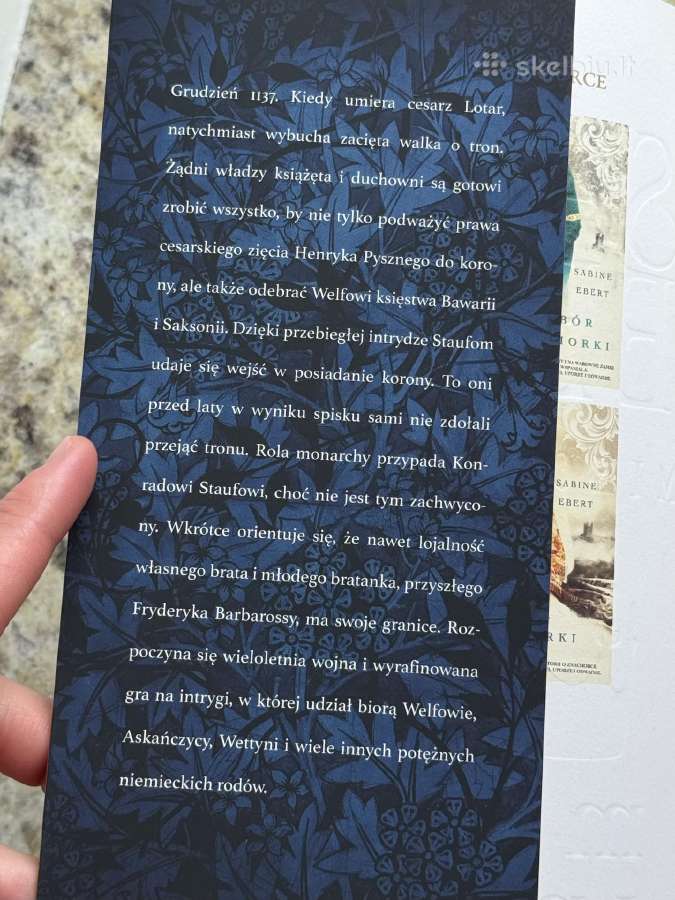 Grudzień 1137. Kiedy umiera cesarz Lotar,
natychmiast wybucha zacięta walka o tron.
Żądni władzy książęta i duchowni są gotowi
zrobić wszystko, by nie tylko podważyć prawa
cesarskiego zięcia Henryka Pysznego do koro-
ny, ale także odebrać Welfowi księstwa Bawarii
i Saksonii. Dzięki przebiegłej intrydze Staufom
udaje się wejść w posiadanie korony. To oni
przed laty w wyniku spisku sami nie zdołali
przejąć tronu. Rola monarchy przypada Kon-
radowi Staufowi, choć nie jest tym zachwyco-
ny. Wkrótce orientuje się, że nawet lojalność
własnego brata i młodego bratanka, przyszłego
Fryderyka Barbarossy, ma swoje granice. Roz-
poczyna się wieloletnia wojna i wyrafinowana
gra na intrygi, w której udział biorą Welfowie,
Askańczycy, Wettyni i wiele innych potężnych
niemieckich rodów.
skelbiu.lt
RCE
SABINE
EBERT
BÓR
MORKI
SABINE
EBERT
RKI